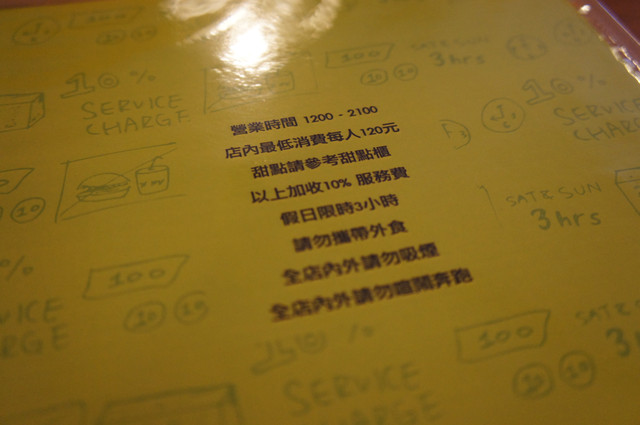 營業時間 1200 - 2100
店內最低消費每人120元
甜點請參考甜點櫃
以上加收10% 服務費
假日限時3小時
請勿攜帶外食
全店內外請勿吸煙
全店內外請勿喧鬧奔跑
100
10 10
SAT & SUN
3 hrs
10%
SERVICE
CHARGE
10%
SERVICE
CHARGE
100
10 10
SAT & SUN
3 hrs
10
100
10 10
SERVICE
RGE
100
10 10
SAT &
3h
10 %
SERVICE
CHARGE